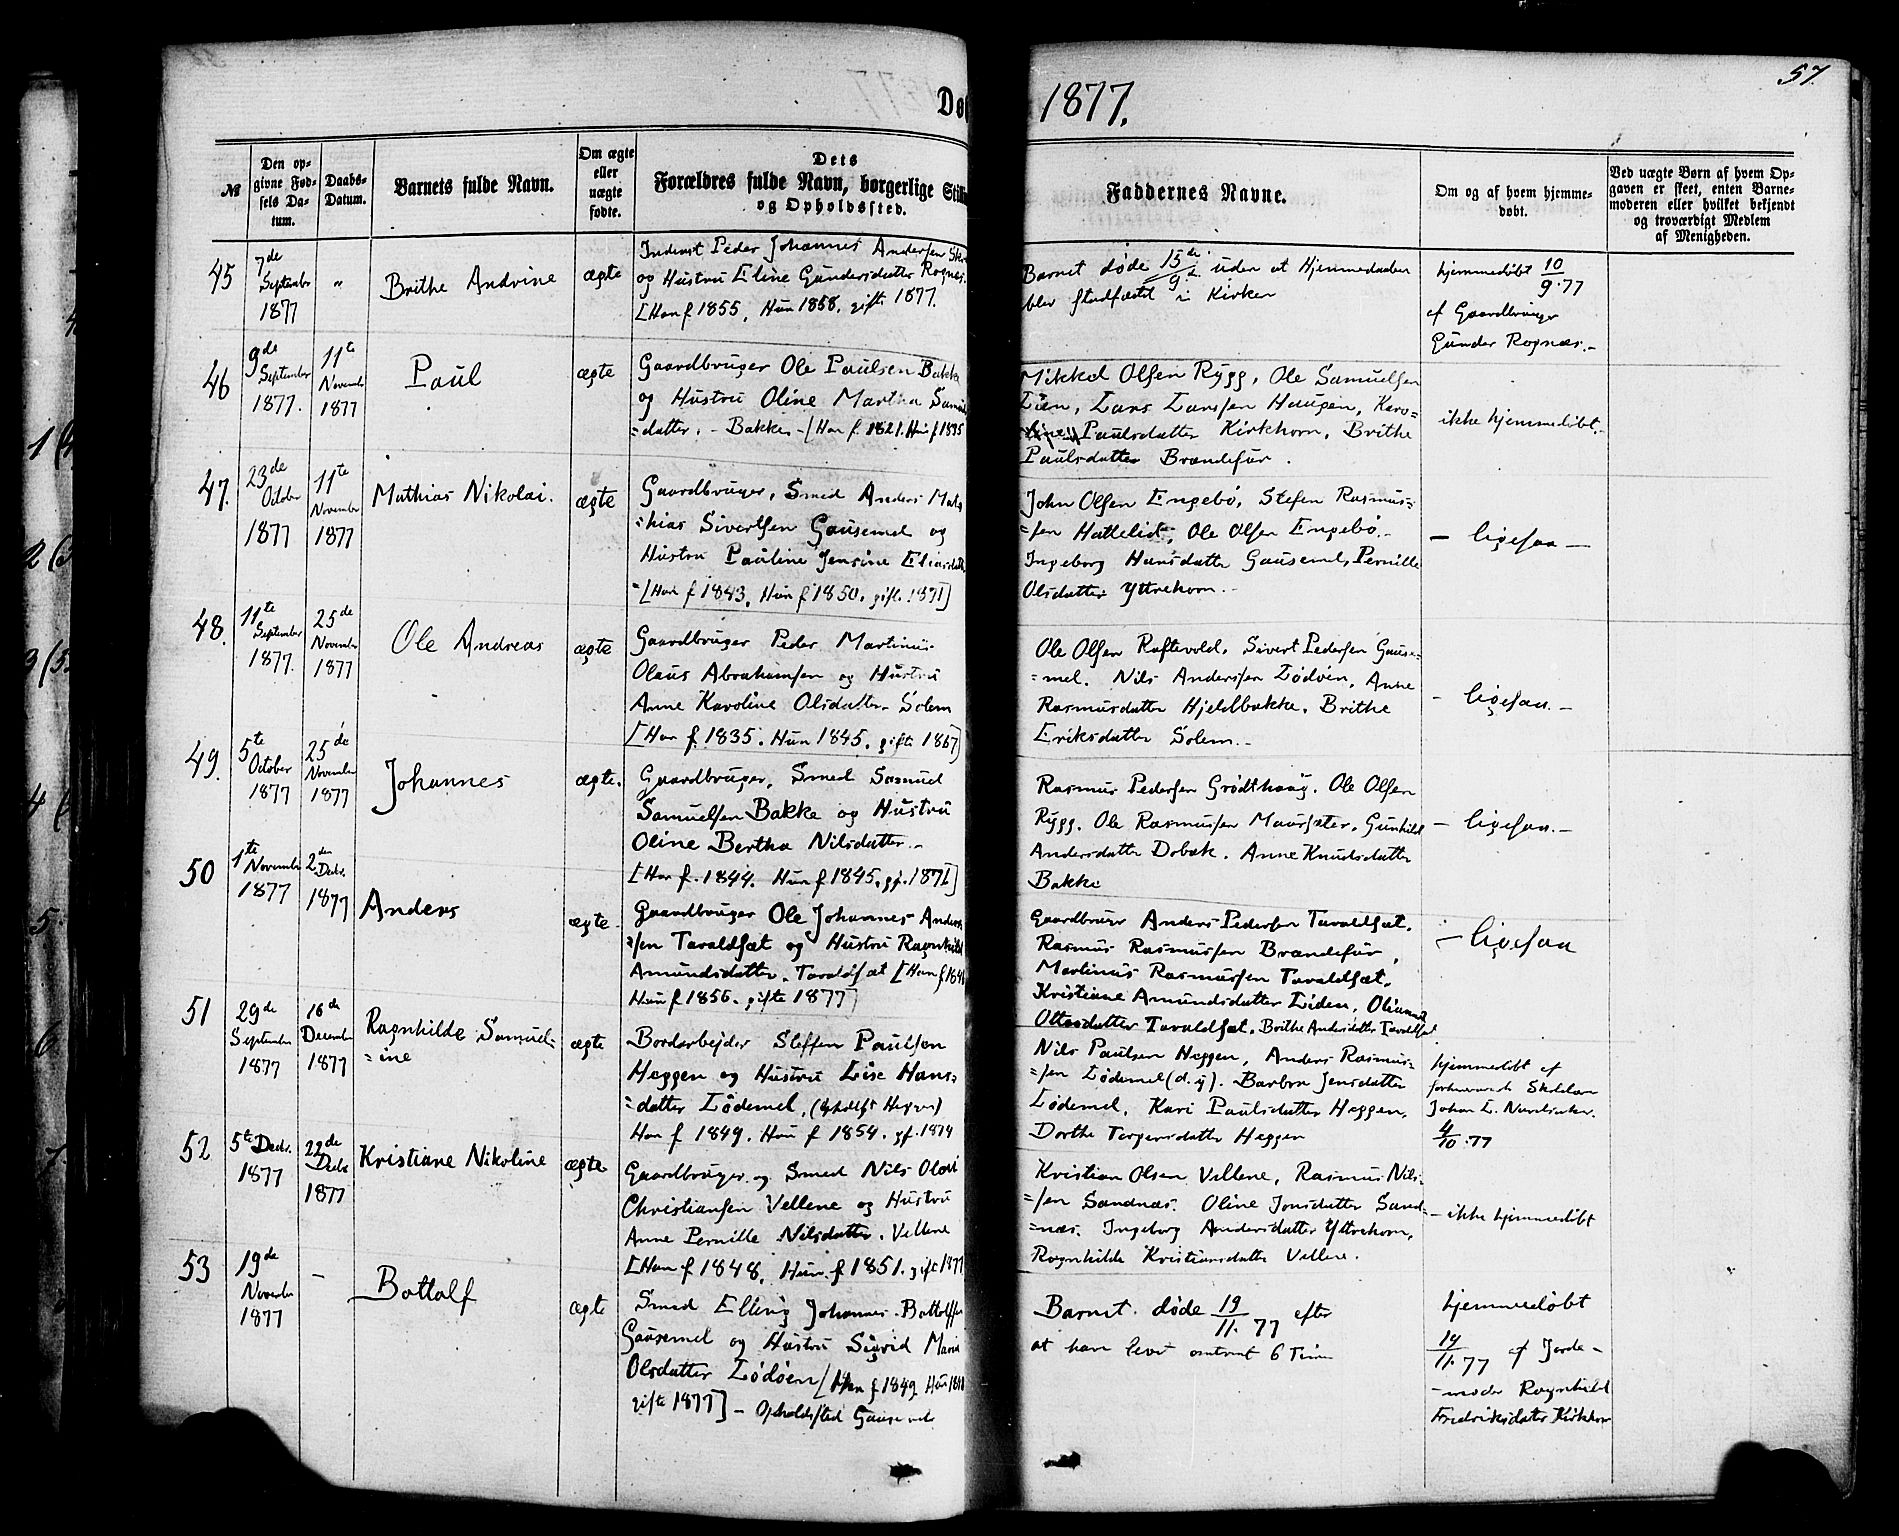 57.
Dø
1877.
№
Den op-
givne Fød-
sels Da-
tum.
Daabs-
Datum.
Barnets fulde Navn.
Om ægte
eller
uægte
fødte.
Dets
Forældres fulde Navn, borgerlige Still
og Opholdssted.
Faddernes Navne.
Om og af hvem hjemme-
døbt.
Ved uægte Børn af hvem Op-
gaven er skeet, enten Barne-
moderen eller hvilket bekjendt
og troværdigt Medlem
af Menigheden.
45
7de
September
1877
"
Brithe Andrine
ægte
Inderst Peder Johannes Andersen
og Hustru Eline Gundersdatter Rognæs.
[Han f 1855, Hun 1858, gift 1877.
Barnet døde 15de/9 uden at Hjemmedaaben
blev stadfæstet i Kirken
hjemmedøbt 10/9.77
af Gaardbruger
Gunder Rognæs.-
46
9de
September
1877.
11te
Novemb
1877
Paul
ægte
Gaardbruger Ole Paulsen Bakke
og Hustru Oline Martha Samuels
=datter. - Bakke - [Han f. 1821. Hun f 1835
Mikkel Olsen Rygg, Ole Samuelsen
Lien, Lars Larssen Haugen, Karo=
line Paulsdatter Kirkhorn, Brithe
Paulsdatter Brændefur.
ikke hjemmedøbt.-
47.
23de
October
1877
11te
November
1877
Mathias Nikolai.
ægte
Gaardbruger, Smed Anders Mat
=hias Sivertsen Gausemel og
Hustru Pauline Jensine Eliasdatt
=[Han f 1843, Hun f 1850, gift. 1871]
John Olsen Engebø, Stefen Rasmus=
=sen Hattelid, Ole Olsen Engebø.-
Ingeborg Hansdatter Gausemel, Pernille
Olsdatter Yttrehorn.-
- ligesaa -
48.
11te
September
1877.
25de
November
1877
Ole Andreas
ægte
Gaardbruger Peder Martinus
Olaus Abrahamsen og Hustru
Anne Karoline Olsdatter Solem
[Han f. 1835. Hun 1845, gifte 1867]
Ole Olsen Raftevold, Sivert Pedersen Gause=
=mel. Nils Anderssen Lødøen, Anne
Rasmusdatter Hjeldbakke, Brithe
Eriksdatter Solem.-
- ligesaa. -
49.
5te
October
1877
25de
November
1877
Johannes
ægte.
Gaardbruger, Smed Samuel
Samuelsen Bakke og Hustru
Oline Bertha Nilsdatter.-
[Han f. 1844. Hun f 1845, gf. 1871]
Rasmus Pedersen Grødthaug, Ole Olsen
Rygg. Ole Rasmussen Maursæter, Gunhild
Andersdatter Dobæk. Anne Knudsdatter
Bakke
- ligesaa. -
50
1te
November
1877
2den
Decbr.
1877
Anders
ægte
Gaardbruger Ole Johannes Anders
=sen Tavaldsæt og Hustru Ragnhild
Amundsdatter. Tavaldsæt [Han f. 184
Hun f 1856. gifte 1877]
Gaardbruger Anders Pedersen Tavaldsæt.
Rasmus Rasmussen Brændefur,
Martinus Rasmussen Tavaldsæt.
Kristiane Amundsdatter Liden, Oliana
Ottesdatter Tavaldsæt. Brithe Andersdatter Tavaldsæt
- ligesaa
51
29de
September
1877
16de
December
1877
Ragnhilde Samuel=
=ine
ægte
Bordarbejder Steffen Paulsen
Heggen og Hustru Lise Hans=
=datter Lødemel, (Opholdst Heggen)
Han f 1849. Hun f 1854. gf. 1874
Nils Paulsen Heggen, Anders Rasmus=
=sen Lødemel (d. y). Barbra Jensdatter
Lødemel, Kari Paulsdatter Heggen,
Dorthe Torgersdatter Heggen
hjemmedøbt af
Johan L.
4/10.77
52
5te Decbr.
1877
22de
Decbr
1877
Kristiane Nikoline
ægte
Gaardbruger og Smed Nils Olai
Christiansen Vellene og Hustru
Anne Pernille Nilsdatter. Vellene
[Han f 1848, Hun f 1851. gift 1877
Kristian Olsen Vellene, Rasmus Nils=
=sen Sandnæs. Oline Jonsdatter Sand=
=næs. Ingeborg Andersdatter Yttrehorn,
Ragnhilde Kristiansdatter Vellene.
- ikke hjemmedøbt
53
19de
Novembr
1877
-
Bottolf
ægte
Smed Elling Johannes Bottolfsen
Gausemel og Hustru Sigrid Marie
Olsdatter Lødøen [Han f 1849 Hun
gifte 1877] - Opholdssted Gausemel
Barnet døde 19/11.77 efter
at have levet omtrent 6 Timer
hjemmedøbt
19/11.77 af Jorde-
-moder Ragnhild
Fredriksdatter Kirkhorn